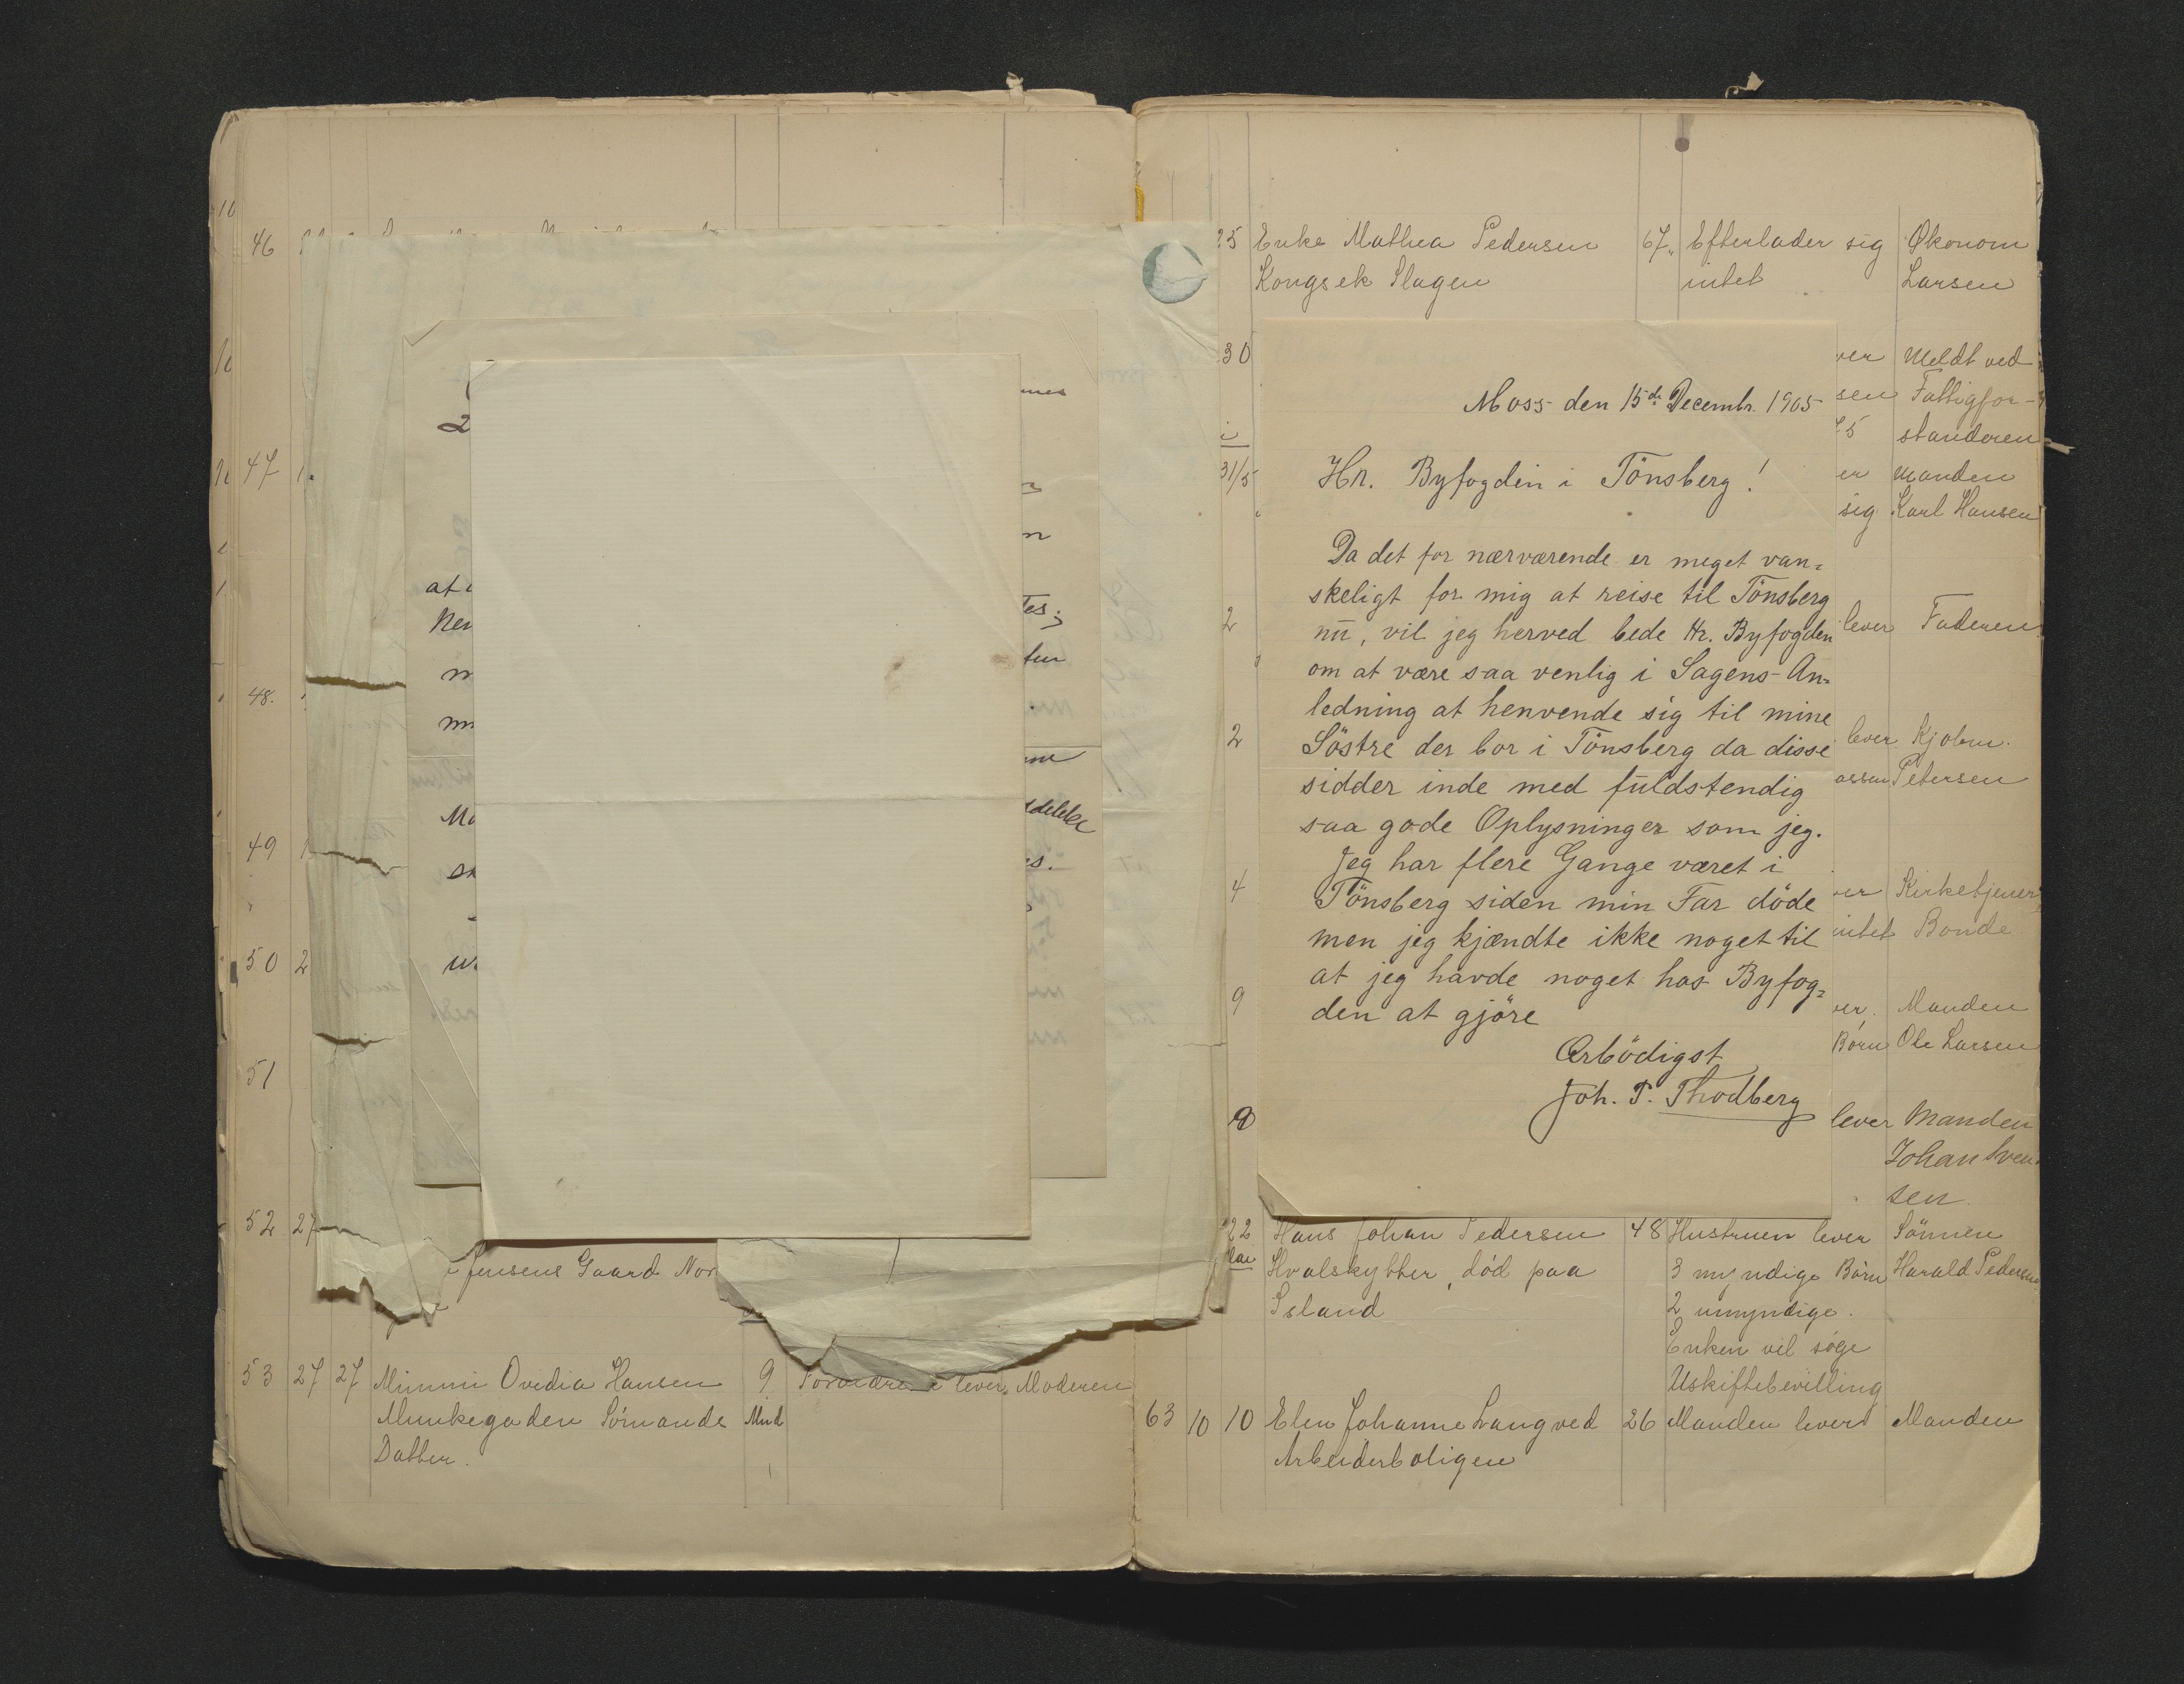 10
46
47
48.
49
50 2
51
52 27
Jensens Gaard Nor
53 27 27 Mimmi Ovidia Hansen 9 Forældrene lever Moderen
Munkegaden Sømands Mnd
Datter.
2
at
m
Ma
tes;
ddelelse
25 Enke Mathea Pedersen 67 Efterlader sig Økonom
Kongsek Slagen intet Larsen
30 ver Meldt ved
sen Fattigfor-
75 standeren
31/5 er Manden
sig Karl Hansen
2 lever Faderen
2 lever Kjøbm.
assen Petersen
4 ver Kirketjener
intet Bonde
9 ver. Manden
Børn Ole Larsen
lever Manden
Johan Sven
sen.
Moss den 15de Decembr. 1905
Hr. Byfogden i Tönsberg!
Da det for nærværende er meget van=
skeligt for mig at reise til Tönsberg
nū, vil jeg herved bede Hr. Byfogden
om at være saa venlig i Sagens An=
ledning at henvende sig til mine
Söstre der bor i Tönsberg da disse
sidder inde med fūldstendig
saa gode Oplysninger som jeg.
Jeg har flere Gange været i
Tönsberg siden min Far döde
men jeg kjændte ikke noget til
at jeg havde noget hos Byfog=
den at gjöre
Ærbödigst
Joh. P. Thodberg
22 Hans Johan Pedersen 48 Hustruen lever Sönnen
Hvalskytter, død paa 3 myndige Børn Harald Pedersen
Island 2 umyndige.
Enken vil søge
Uskiftebevilling
63 10 10 Elen Johanne Langved 26 Manden lever Manden
Arbeiderboligen